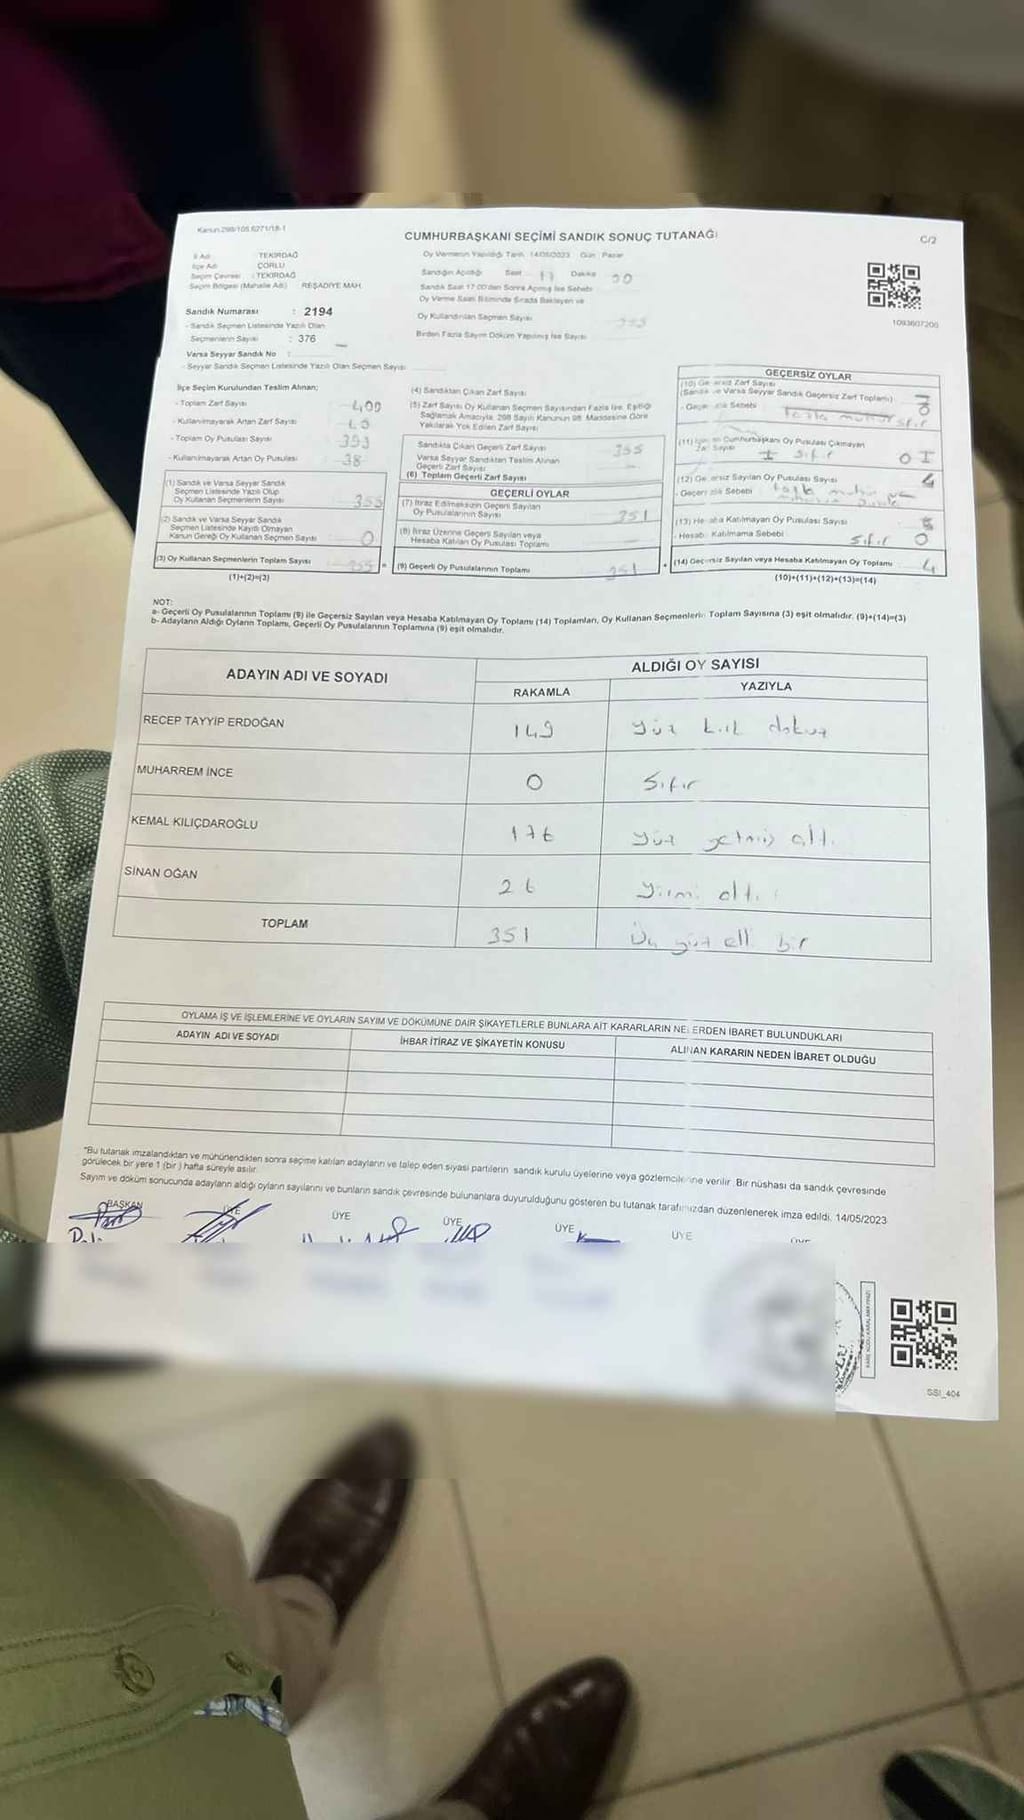 Kanun 298/105.6271/18-1
CUMHURBAŞKANI SEÇİMİ SANDIK SONUÇ TUTANAĞI
C/2
İl Adı TEKİRDAĞ
İlçe Adı ÇORLU
Seçim Çevresi : TEKİRDAĞ
Seçim Bölgesi (Mahalle Adı) REŞADİYE MAH.
Sandık Numarası : 2194
- Sandık Seçmen Listesinde Yazılı Olan
Seçmenlerin Sayısı : 376
Varsa Seyyar Sandık No :
- Seyyar Sandık Seçmen Listesinde Yazılı Olan Seçmen Sayısı
Oy Vermenin Yapıldığı Tarih 14/05/2023 Gün Pazar
Sandığın Açıldığı Saat 17 Dakika 00
Sandık Saat 17:00'den Sonra Açılmış İse Sebebi
Oy Verme Saati Bitiminde Sırada Bekleyen ve
Oy Kullandırılan Seçmen Sayısı
Birden Fazla Sayım Döküm Yapılmış İse Sayısı
1093607200
İlçe Seçim Kurulundan Teslim Alınan;
- Toplam Zarf Sayısı 400
- Kullanılmayarak Artan Zarf Sayısı
- Toplam Oy Pusulası Sayısı 393
- Kullanılmayarak Artan Oy Pusulası 38
(1) Sandık ve Varsa Seyyar Sandık
Seçmen Listesinde Yazılı Olup
Oy Kullanan Seçmenlerin Sayısı 355
(2) Sandık ve Varsa Seyyar Sandık
Seçmen Listesinde Kayıtlı Olmayan
Kanun Gereği Oy Kullanan Seçmen Sayısı 0
(3) Oy Kullanan Seçmenlerin Toplam Sayısı 355
(1)+(2)=(3)
(4) Sandıktan Çıkan Zarf Sayısı
(5) Zarf Sayısı Oy Kullanan Seçmen Sayısından Fazla İse, Eşitliği
Sağlamak Amacıyla, 298 Sayılı Kanunun 98. Maddesine Göre
Yakılarak Yok Edilen Zarf Sayısı
Sandıkta Çıkan Geçerli Zarf Sayısı 355
Varsa Seyyar Sandıktan Teslim Alınan
Geçerli Zarf Sayısı
(6) Toplam Geçerli Zarf Sayısı
GEÇERLİ OYLAR
(7) İtiraz Edilmeksizin Geçerli Sayılan
Oy Pusulalarının Sayısı 351
(8) İtiraz Üzerine Geçerli Sayılan veya
Hesaba Katılan Oy Pusulası Toplamı
= (9) Geçerli Oy Pusulalarının Toplamı 351
GEÇERSİZ OYLAR
(10) Geçersiz Zarf Sayısı
(Sandık ve Varsa Seyyar Sandık Geçersiz Zarf Toplamı)
- Geçersizlik Sebebi
Cumhurbaşkanı Oy Pusulası Çıkmayan
Zarf Sayısı sıfır 0
(12) Geçersiz Sayılan Oy Pusulası Sayısı 4
- Geçersizlik Sebebi
(13) Hesaba Katılmayan Oy Pusulası Sayısı
- Hesaba Katılmama Sebebi sıfır 0
+ (14) Geçersiz Sayılan veya Hesaba Katılmayan Oy Toplamı 4
(10)+(11)+(12)+(13)=(14)
NOT:
a- Geçerli Oy Pusulalarının Toplamı (9) ile Geçersiz Sayılan veya Hesaba Katılmayan Oy Toplamı (14) Toplamları, Oy Kullanan Seçmenlerin Toplam Sayısına (3) eşit olmalıdır. (9)+(14)=(3)
b- Adayların Aldığı Oyların Toplamı, Geçerli Oy Pusulalarının Toplamına (9) eşit olmalıdır.
ADAYIN ADI VE SOYADI ALDIĞI OY SAYISI
RAKAMLA YAZIYLA
RECEP TAYYİP ERDOĞAN 149 yüz kırk dokuz
MUHARREM İNCE 0 sıfır
KEMAL KILIÇDAROĞLU 176 yüz yetmiş altı
SİNAN OĞAN 26 yirmi altı
TOPLAM 351 Üç yüz elli bir
OYLAMA İŞ VE İŞLEMLERİNE VE OYLARIN SAYIM VE DÖKÜMÜNE DAİR ŞİKAYETLERLE BUNLARA AİT KARARLARIN NELERDEN İBARET BULUNDUKLARI
ADAYIN ADI VE SOYADI İHBAR İTİRAZ VE ŞİKAYETİN KONUSU ALINAN KARARIN NEDEN İBARET OLDUĞU
*Bu tutanak imzalandıktan ve mühürlendikten sonra seçime katılan adayların ve talep eden siyasi partilerin sandık kurulu üyelerine veya gözlemcilerine verilir. Bir nüshası da sandık çevresinde
görülecek bir yere 1 (bir) hafta süreyle asılır.
Sayım ve döküm sonucunda adayların aldığı oyların sayılarını ve bunların sandık çevresinde bulunanlara duyurulduğunu gösteren bu tutanak tarafımızdan düzenlenerek imza edildi. 14/05/2023
BAŞKAN ÜYE ÜYE ÜYE ÜYE ÜYE ÜYE
SSI_404